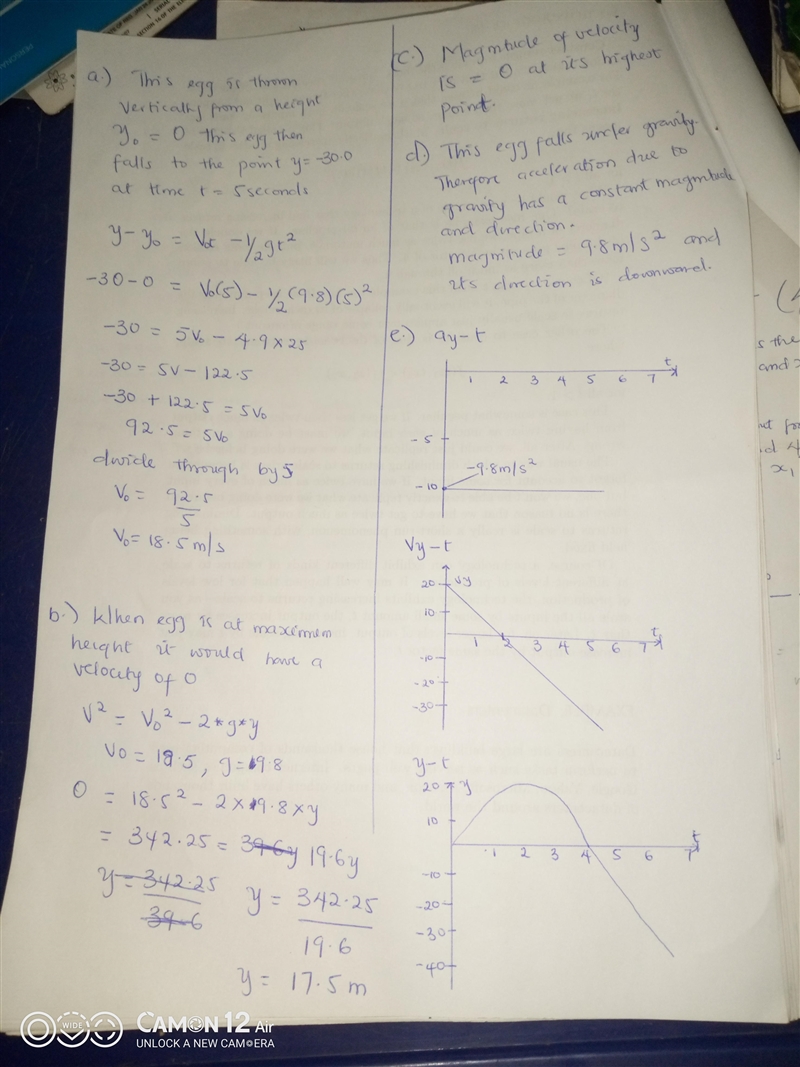 a.) This egg is thrown
vertically from a height
y₀ = 0 This egg then
falls to the point y = -30.0
at time t = 5 seconds
y - y₀ = V₀t - 1/2 gt²
-30 - 0 = V₀(5) - 1/2 (9.8)(5)²
-30 = 5V₀ - 4.9 x 25
-30 = 5V - 122.5
-30 + 122.5 = 5V₀
92.5 = 5V₀
divide through by 5
V₀ = 92.5
5
V₀ = 18.5 m/s
b.) When egg is at maximum
height it would have a
velocity of 0
V² = V₀² - 2*g*y
V0 = 18.5, g = 9.8
0 = 18.5² - 2 x 9.8 x y
= 342.25 = 39.6y 19.6y
y = 342.25
39.6
y = 342.25
19.6
y = 17.5 m
(c.) Magnitude of velocity
is = 0 at its highest
point.
d.) This egg falls under gravity.
Therefore acceleration due to
gravity has a constant magnitude
and direction.
magnitude = 9.8 m/s² and
its direction is downward.
e.) ay - t
t
1 2 3 4 5 6 7
-5
-9.8 m/s²
-10
Vy - t
20 vy
10
t
1 2 3 4 5 6 7
-10
-20
-30
y - t
20 y
10
t
1 2 3 4 5 6 7
-10
-20
-30
-40
s the
and
x₁
WIDE
CAMON 12 Air
UNLOCK A NEW CAMERA